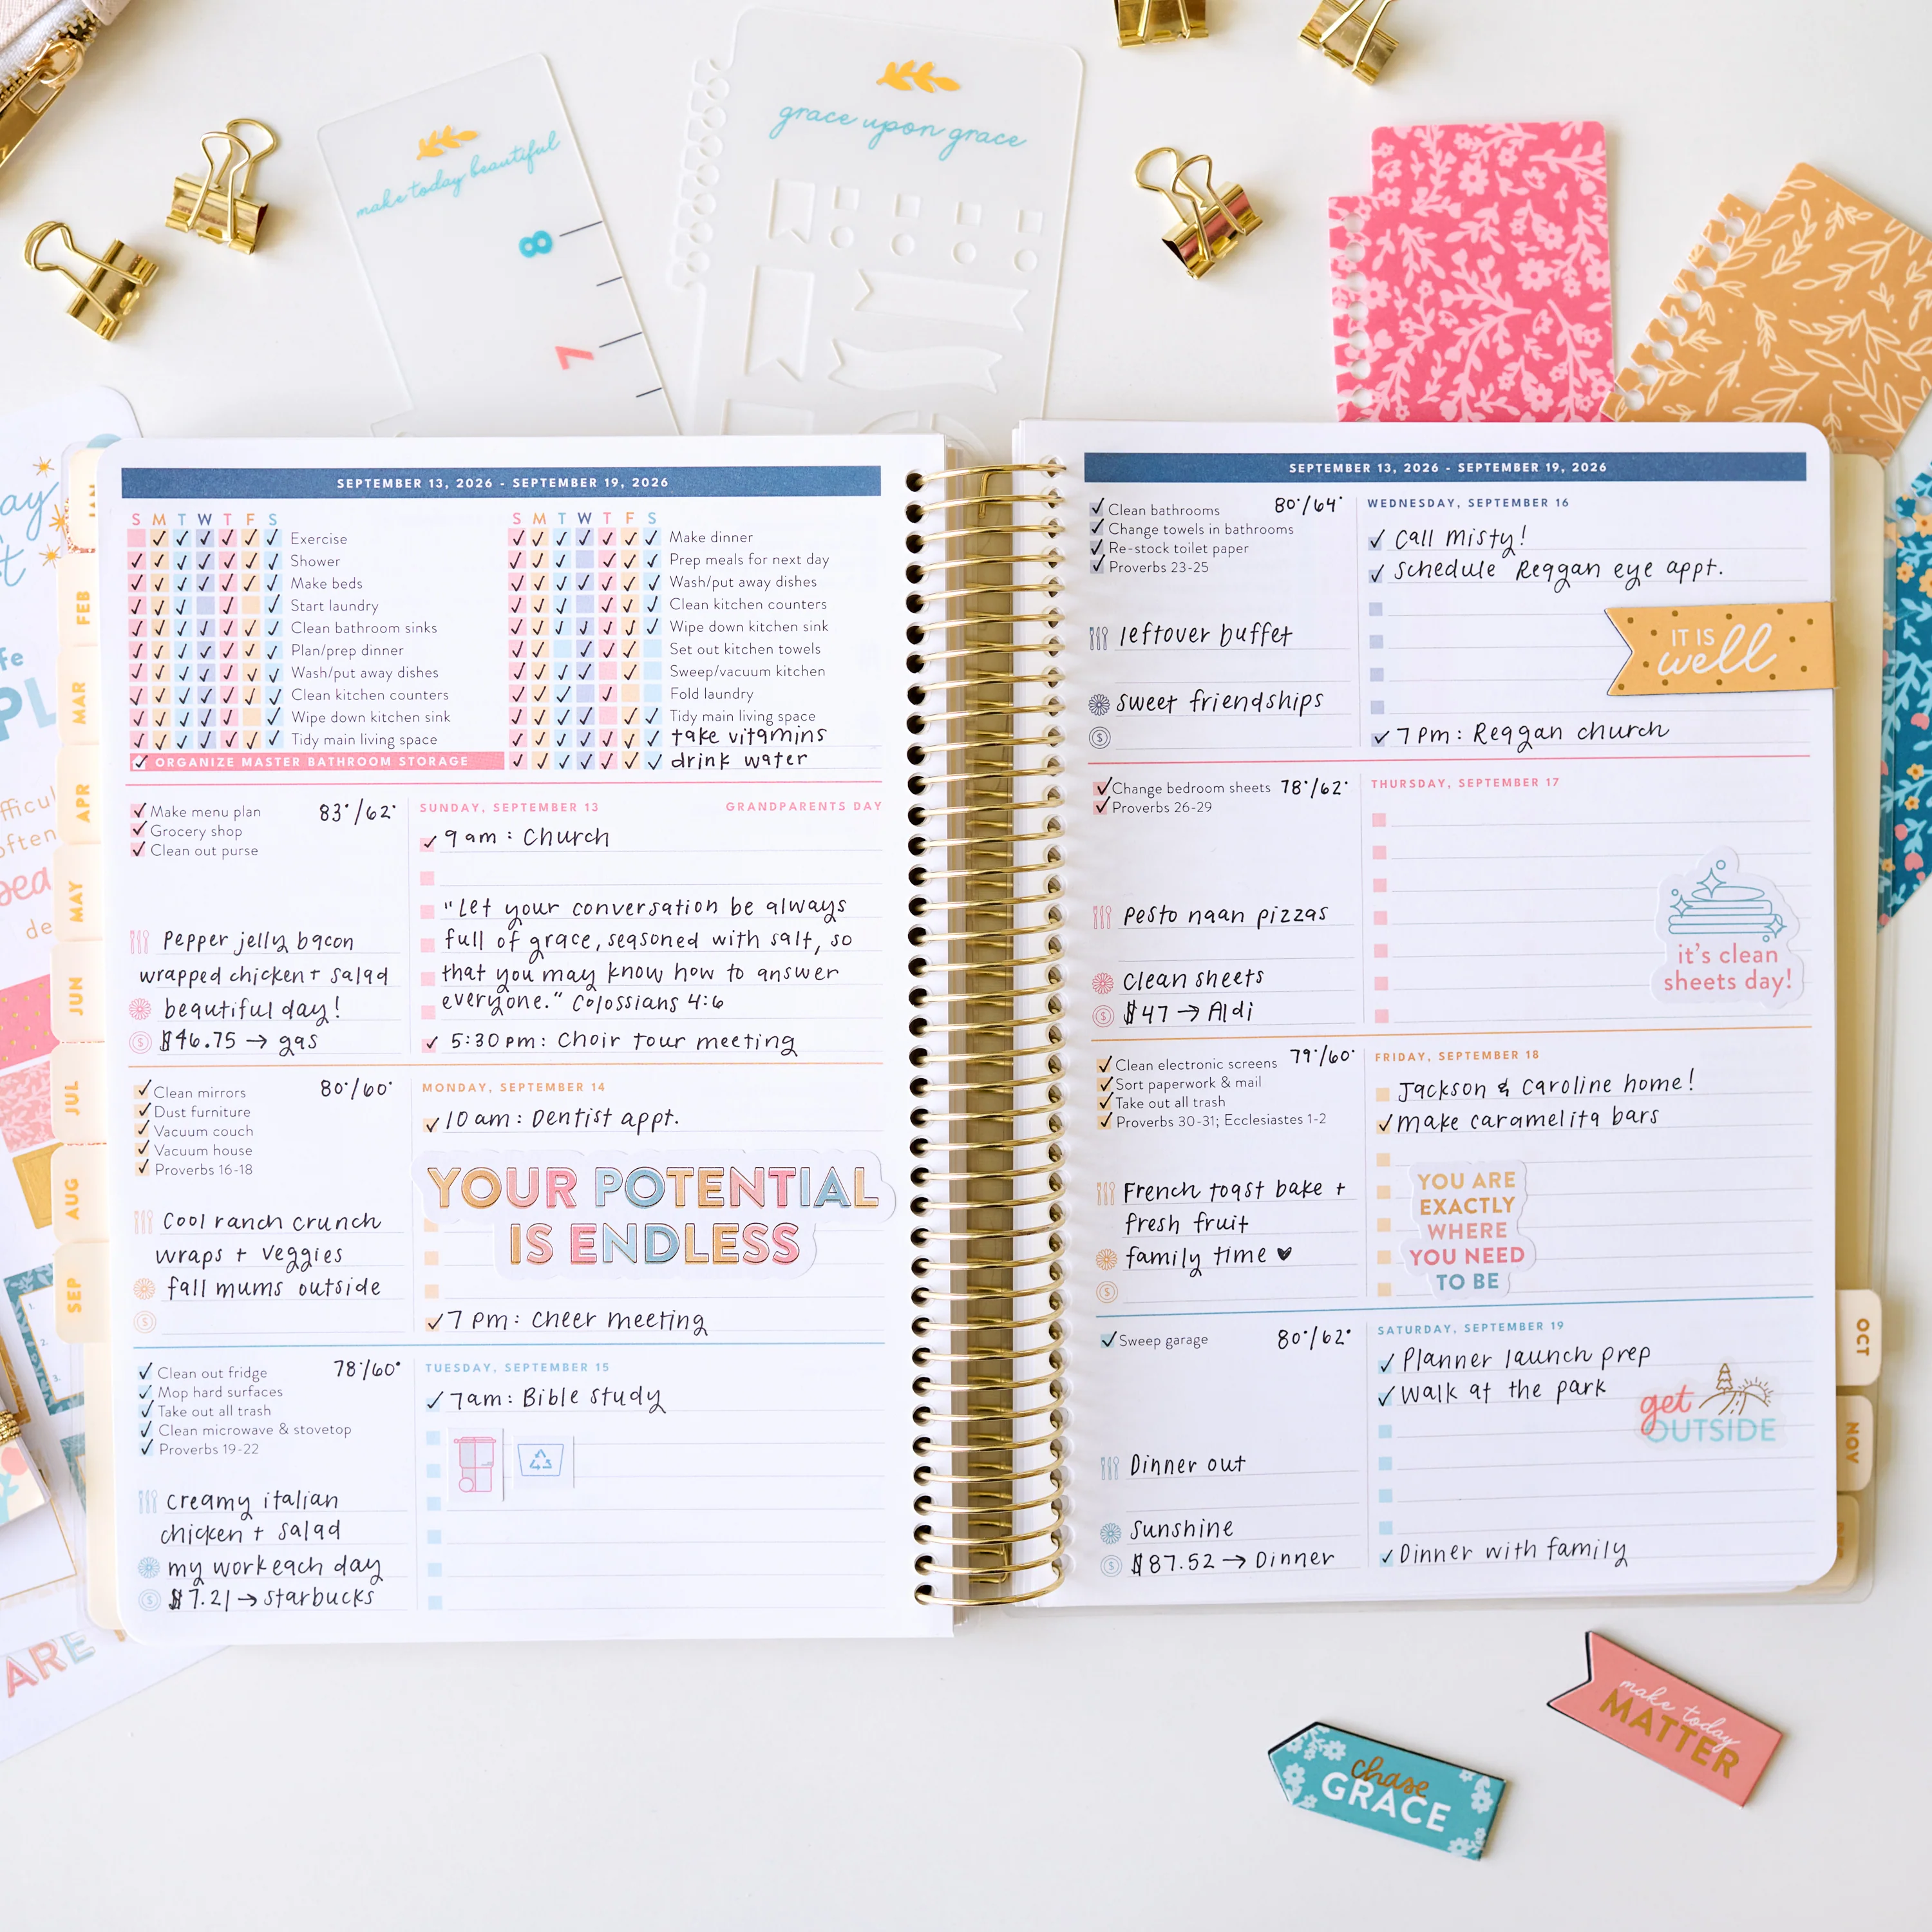 make today beautiful
8
7
grace upon grace
JAN
FEB
MAR
APR
MAY
JUN
JUL
AUG
SEP
SEPTEMBER 13, 2026 - SEPTEMBER 19, 2026
S M T W T F S
Exercise
Shower
Make beds
Start laundry
Clean bathroom sinks
Plan/prep dinner
Wash/put away dishes
Clean kitchen counters
Wipe down kitchen sink
Tidy main living space
ORGANIZE MASTER BATHROOM STORAGE
S M T W T F S
Make dinner
Prep meals for next day
Wash/put away dishes
Clean kitchen counters
Wipe down kitchen sink
Set out kitchen towels
Sweep/vacuum kitchen
Fold laundry
Tidy main living space
take vitamins
drink water
Make menu plan 83°/62°
Grocery shop
Clean out purse
Pepper jelly bacon
wrapped chicken + salad
beautiful day!
$46.75 → gas
SUNDAY, SEPTEMBER 13 GRANDPARENTS DAY
9 am: Church
"Let your conversation be always
full of grace, seasoned with salt, so
that you may know how to answer
everyone." Colossians 4:6
5:30 pm: Choir tour meeting
Clean mirrors 80°/60°
Dust furniture
Vacuum couch
Vacuum house
Proverbs 16-18
Cool ranch crunch
wraps + veggies
fall mums outside
MONDAY, SEPTEMBER 14
10 am: Dentist appt.
YOUR POTENTIAL
IS ENDLESS
7 pm: Cheer meeting
Clean out fridge 78°/60°
Mop hard surfaces
Take out all trash
Clean microwave & stovetop
Proverbs 19-22
creamy italian
chicken + salad
my work each day
$7.21 → Starbucks
TUESDAY, SEPTEMBER 15
7am: Bible study
SEPTEMBER 13, 2026 - SEPTEMBER 19, 2026
Clean bathrooms 80°/64°
Change towels in bathrooms
Re-stock toilet paper
Proverbs 23-25
leftover buffet
sweet friendships
WEDNESDAY, SEPTEMBER 16
Call Misty!
Schedule Reagan eye appt.
IT IS
well
7 pm: Reagan church
Change bedroom sheets 78°/62°
Proverbs 26-29
Pesto naan pizzas
Clean sheets
$47 → Aldi
THURSDAY, SEPTEMBER 17
it's clean
sheets day!
Clean electronic screens 79°/60°
Sort paperwork & mail
Take out all trash
Proverbs 30-31; Ecclesiastes 1-2
French toast bake +
fresh fruit
family time ♥
FRIDAY, SEPTEMBER 18
Jackson & Caroline home!
make caramelita bars
YOU ARE
EXACTLY
WHERE
YOU NEED
TO BE
Sweep garage 80°/62°
Dinner out
Sunshine
$87.52 → Dinner
SATURDAY, SEPTEMBER 19
Planner launch prep
Walk at the park
get
OUTSIDE
Dinner with family
OCT
NOV
make today
MATTER
chase
GRACE